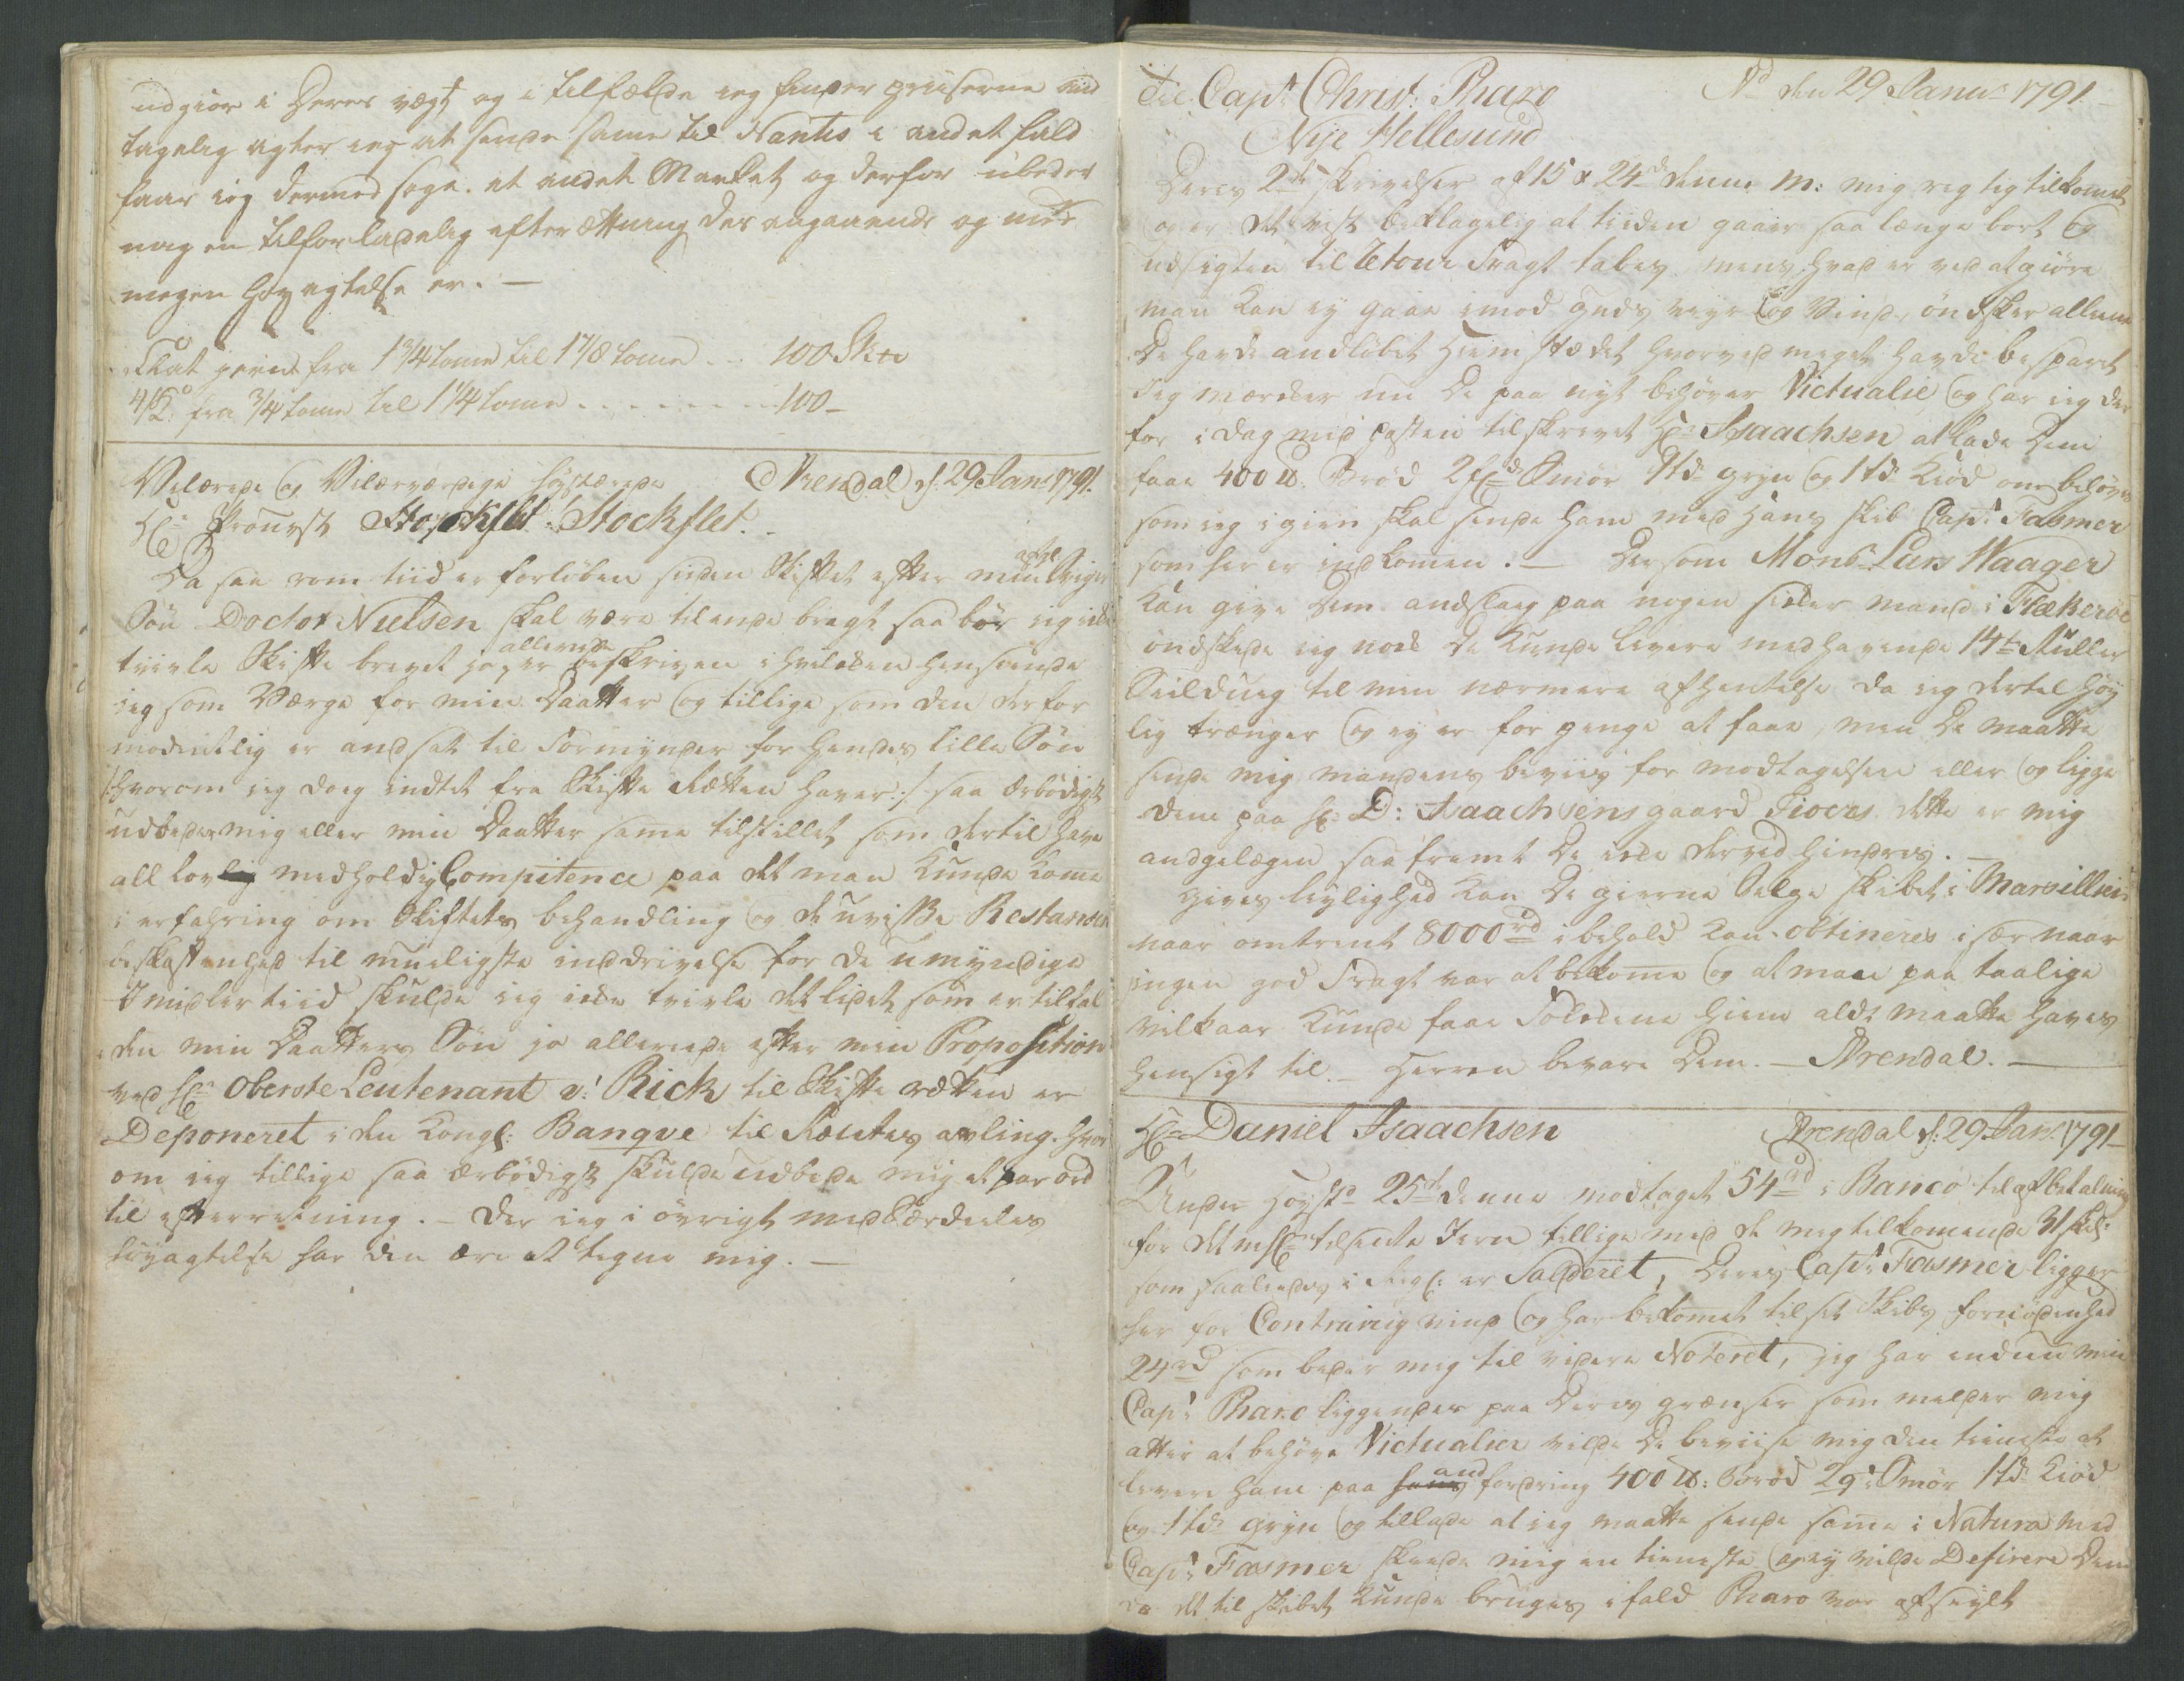 udgiør i Deres vægt og i tilfælde ieg finder priiserne and
tagelig agter ieg at sende same til Nantes i andet fald
faar ieg dermed søge et andet Market og derfor udbeder
mig en tilforladelig efterrættning des angaaende og med
megen høyagtelse er. —
Flat jern fra 1 3/4 tome til 1 7/8 tome .. 100 Sk℔
4/K D.o fra 3/4 tome til 1 1/4 tome ........ 100 –
Velærede og Velærværdige høystærede Arendal d: 29 Janr 1791.
Hr Provst Stockflet. –
Da saa rom tiid er forløben siden Skiftet efter min afg: Sviger
Søn Doctor Nielsen skal være til ende bragt saa bør ieg icke
tvivle Skifte brevet jo er allerede beskreven i hvilcken henseende
ieg som Værge for min Daatter og tillige som den der for
modentlig er andsat til Formynder for hendes lille Søn
/:hvorom ieg dog indtet fra Skifte Retten haver:/ saa ærbødigst
udbeder mig eller min Daatter same tilstillet som dertil have
all lov medholdig Compitence paa det man kunde kome
i erfahring om Skiftets behandling og de uvisse Restancers
beskaffenhed til mueligste inddrivelse for de umyndige
Imidlertiid skulde ieg icke tvivle det lidet som er tilfal
den min Daatters Søn jo allerede efter min Proposition
ved Hr Oberste Leutenant v: Rick til Skifte rætten er
Deponeret i den Kongl: Banqve til Rentes avling. hvor
om ieg tillige saa ærbødigst skulde udbede mig et par ord
til efterretning. – Der ieg i øvrigt med Særdeeles
høyagtelse har den ære at tegne mig. —
Til Capt Christ: Pharo Ad den 29 Janur 1791. –
Nye Hellesund
Deres 2de skrivelser af 15 & 24de denne M: mig rigtig tilkomet
og er det vist beklagelig at tiiden gaaer saa længe bort og
udsigten til Retour Fragt tabes, mens hvad er ved at giøre
man kan ey gaae imod Guds veyr og Vind, ønsker allene
De havde andløbet Hiem stædet hvorved meget havde besparet
Ieg mærcker nu De paa nyt behøver Victualie og har ieg der
for i Dag med Posten tilskrevet Hr Isaachsen at lade Dem
faae 400 ℔. Brød 2 fd Smør 1 td: gryn og 1 td: Kiød om behøves
som ieg igien skal sende ham med hans skib Capt: Fasmer
som her er indkomen. — Dersom Monsr Lars Waager
kan give Dem andslaeg paa nogen sicker mand i Flækerøe
ønskede ieg nock De kunde levere medhavende 14 te Ruller
Seildueg til min nærmere afhentelse da ieg dertil høy
lig trænger og ey er for penge at faae, men De maatte
sende mig mandens beviis for modtagelsen eller og ligge
dem paa Hr D: Isaachsens gaard Fiocrs. dette er mig
andgelægen saa fremt De icke derved hindres. –
Gives leylighed kan De gierne Selge skibet i Marsillien
naar omtrent 8000 rd i behold kan obtineres i sær naar
ingen god Fragt var at bekome og at man paa taalige
vilkaar kunde faae Folckene hiem alds maatte haves
hensigt til. – Herren bevare Dem. — Arendal. —
Hr Daniel Isaachsen Arendal d: 29. Janr. 1791 –
Under Høystd 25de denne modtaget 54 rd i Banco til afbetaling
for det tilsente Jern tillige med de meg tilkomende 31 sk:
som saaledes i Regl: er Salderet, Deres Capt: Fasmer ligger
her for Contrairig vind og har bekomet til sit Skibs fornødenhed
24 rd som beder mig til videre Noteret, jeg har endnu min
Capt: Pharo liggendes paa Deres grænser som melder mig
atter at behøve Victualier vilde De beviise mig den tieneste at
levere ham paa and fordring 400 ℔: Brød 2 g: Smør 1 td: Kiød
og 1 td: gryn og tillade at ieg maatte sende same i Natura med
Capt: Fasmer skeede mig en tieneste og ey vilde Desirere Dem
da det til skibet kunde bruges i fald Pharo var afseylt